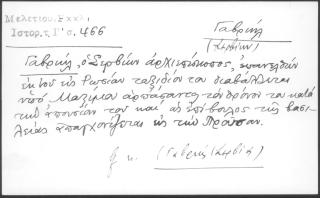 Μελετίου, Εκκλ.
Ιστορ. τ. Γ' σ. 466
Γαβριήλ
(Σερβίας)
Γαβριήλ, ὁ Σερβίων ἀρχιεπίσκοπος, ἐπανελθὼν
ἐκ τοῦ εἰς Ρωσίαν ταξιδίου του διαβάλλεται
ὑπὸ Μαξίμου ἁρπάσαντος τὸν θρόνον του κατὰ
τὴν ἀπουσίαν του καὶ ὡς ἐπίβουλος τῆς βασι-
λείας ἀπαγχονίζεται εἰς τὴν Προῦσαν.
(Γαβριὴλ Σερβίας)